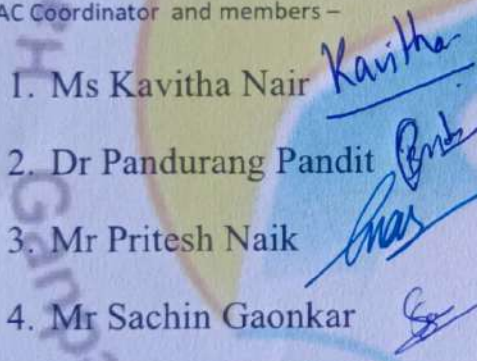 AC Coordinator and members –
1. Ms Kavitha Nair Kavitha
2. Dr Pandurang Pandit
3. Mr Pritesh Naik
4. Mr Sachin Gaonkar